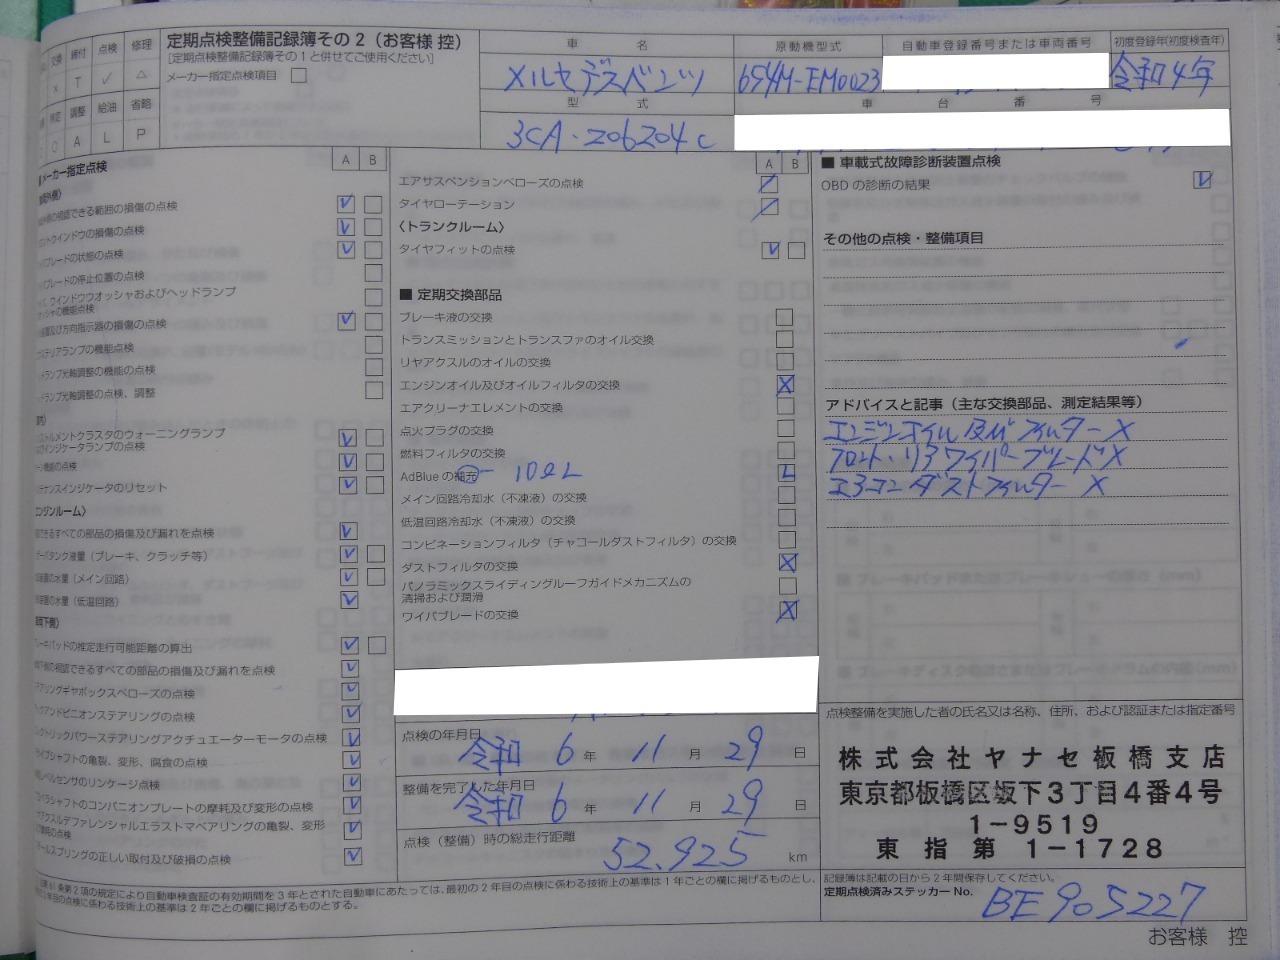 交換 締付 点検 修理
× T ✓ △
調整 給油 省略
○ A L P
定期点検整備記録簿その2(お客様 控)
[定期点検整備記録簿その1と併せてご使用ください]
メーカー指定点検項目
車 名
メルセデスベンツ
型 式
3CA-206204C
原動機型式
654M-EM0023
自動車登録番号または車両番号
初度登録年(初度検査年)
令和4年
車 台 番 号
メーカー指定点検
A B
視認できる範囲の損傷の点検
ウインドウの損傷の点検
ブレードの状態の点検
ブレードの停止位置の点検
ウインドウウオッシャおよびヘッドランプ
の機能点検
及び方向指示器の損傷の点検
テリアランプの機能点検
ドランプ光軸調整の機能の点検
ドランプ光軸調整の点検、調整
ストルメントクラスタのウォーニングランプ
インジケータランプの点検
機能の点検
テナンスインジケータのリセット
エンジンルーム〉
できるすべての部品の損傷及び漏れを点検
ブタンク液量(ブレーキ、クラッチ等)
の水量(メイン回路)
の水量(低温回路)
下側〉
ブレーキパッドの推定走行可能距離の算出
視認できるすべての部品の損傷及び漏れを点検
テアリングギヤボックスベローズの点検
ックアンドピニオンステアリングの点検
クトリックパワーステアリングアクチュエーターモータの点検
ライブシャフトの亀裂、変形、腐食の点検
レベルセンサのリンケージ点検
ペラシャフトのコンパニオンプレートの摩耗及び変形の点検
アクスルデファレンシャルエラストマベアリングの亀裂、変形
の点検
ールスプリングの正しい取付及び破損の点検
A B
エアサスペンションベローズの点検
タイヤローテーション
〈トランクルーム〉
タイヤフィットの点検
■ 定期交換部品
ブレーキ液の交換
トランスミッションとトランスファのオイル交換
リヤアクスルのオイルの交換
エンジンオイル及びオイルフィルタの交換 X
エアクリーナエレメントの交換
点火プラグの交換
燃料フィルタの交換
AdBlue の補充 L
メイン回路冷却水(不凍液)の交換
低温回路冷却水(不凍液)の交換
コンビネーションフィルタ(チャコールダストフィルタ)の交換
ダストフィルタの交換 X
パノラミックスライディングルーフガイドメカニズムの
清掃および潤滑
ワイパブレードの交換 X
点検の年月日
令和 6 年 11 月 29 日
整備を完了した年月日
令和 6 年 11 月 29 日
点検(整備)時の総走行距離
52,925 km
■ 車載式故障診断装置点検
OBD の診断の結果
その他の点検・整備項目
アドバイスと記事(主な交換部品、測定結果等)
エンジンオイル及びフィルター X
フロント・リアワイパーブレード X
エアコンダストフィルター X
点検整備を実施した者の氏名又は名称、住所、および認証または指定番号
株式会社ヤナセ板橋支店
東京都板橋区坂下3丁目4番4号
1-9519
東 指 第 1-1728
記録簿は記載の日から2年間保存してください。
定期点検済みステッカー No.
BE905227
条第2項の規定により自動車検査証の有効期間を3年とされた自動車にあたっては、最初の2年目の点検に係わる技術上の基準は1年ごとの欄に掲げるものとし、
年目の点検に係わる技術上の基準は2年ごとの欄に掲げるものとする。
お客様 控